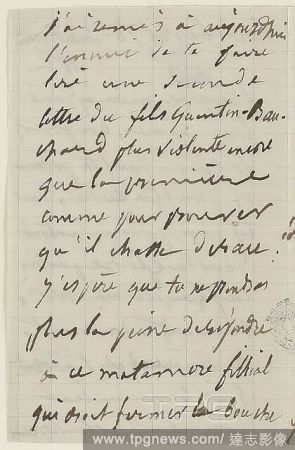 j'ai remis à aujourd'hui
l'ennui de te faire
lire une seconde
lettre du fils Quentin-Bau-
chard plus violente encore
que la première
comme pour prouver
qu'il chasse de race.
J'espère que tu ne prendras
plas la peine de répondre
à ce matamore filial
qui doit fermer la bouche
TPG
www.tpgnews.com / 達志影像